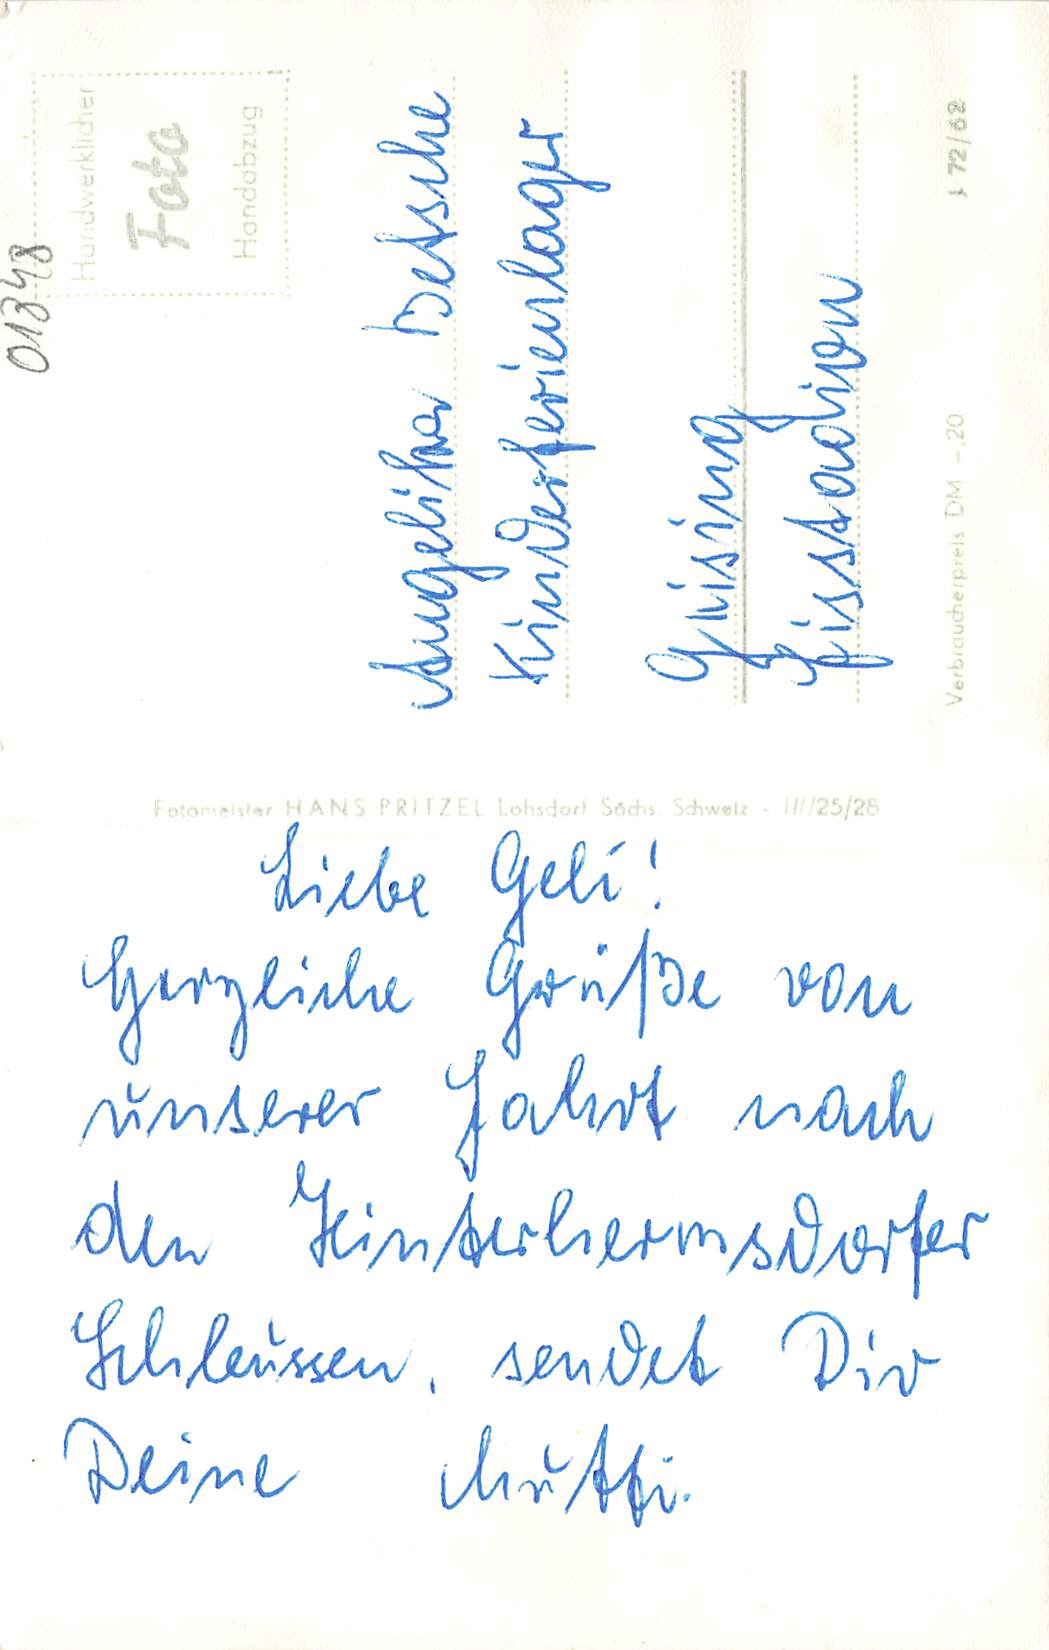 Liebe Geli!
Herzliche Grüße von
unserer Fahrt nach
den Hinterhermsdorfer
Schleussen, sendet Dir
Deine Mutti.
Fotomeister HANS PRITZEL Lohsdorf Sächs. Schweiz - III/25/28
01348
Handwerklicher
Foto
Handabzug
Angelika
Kinderferienlager
Geising
Eisstadion
Verbraucherpreis DM -.20
J 72/62